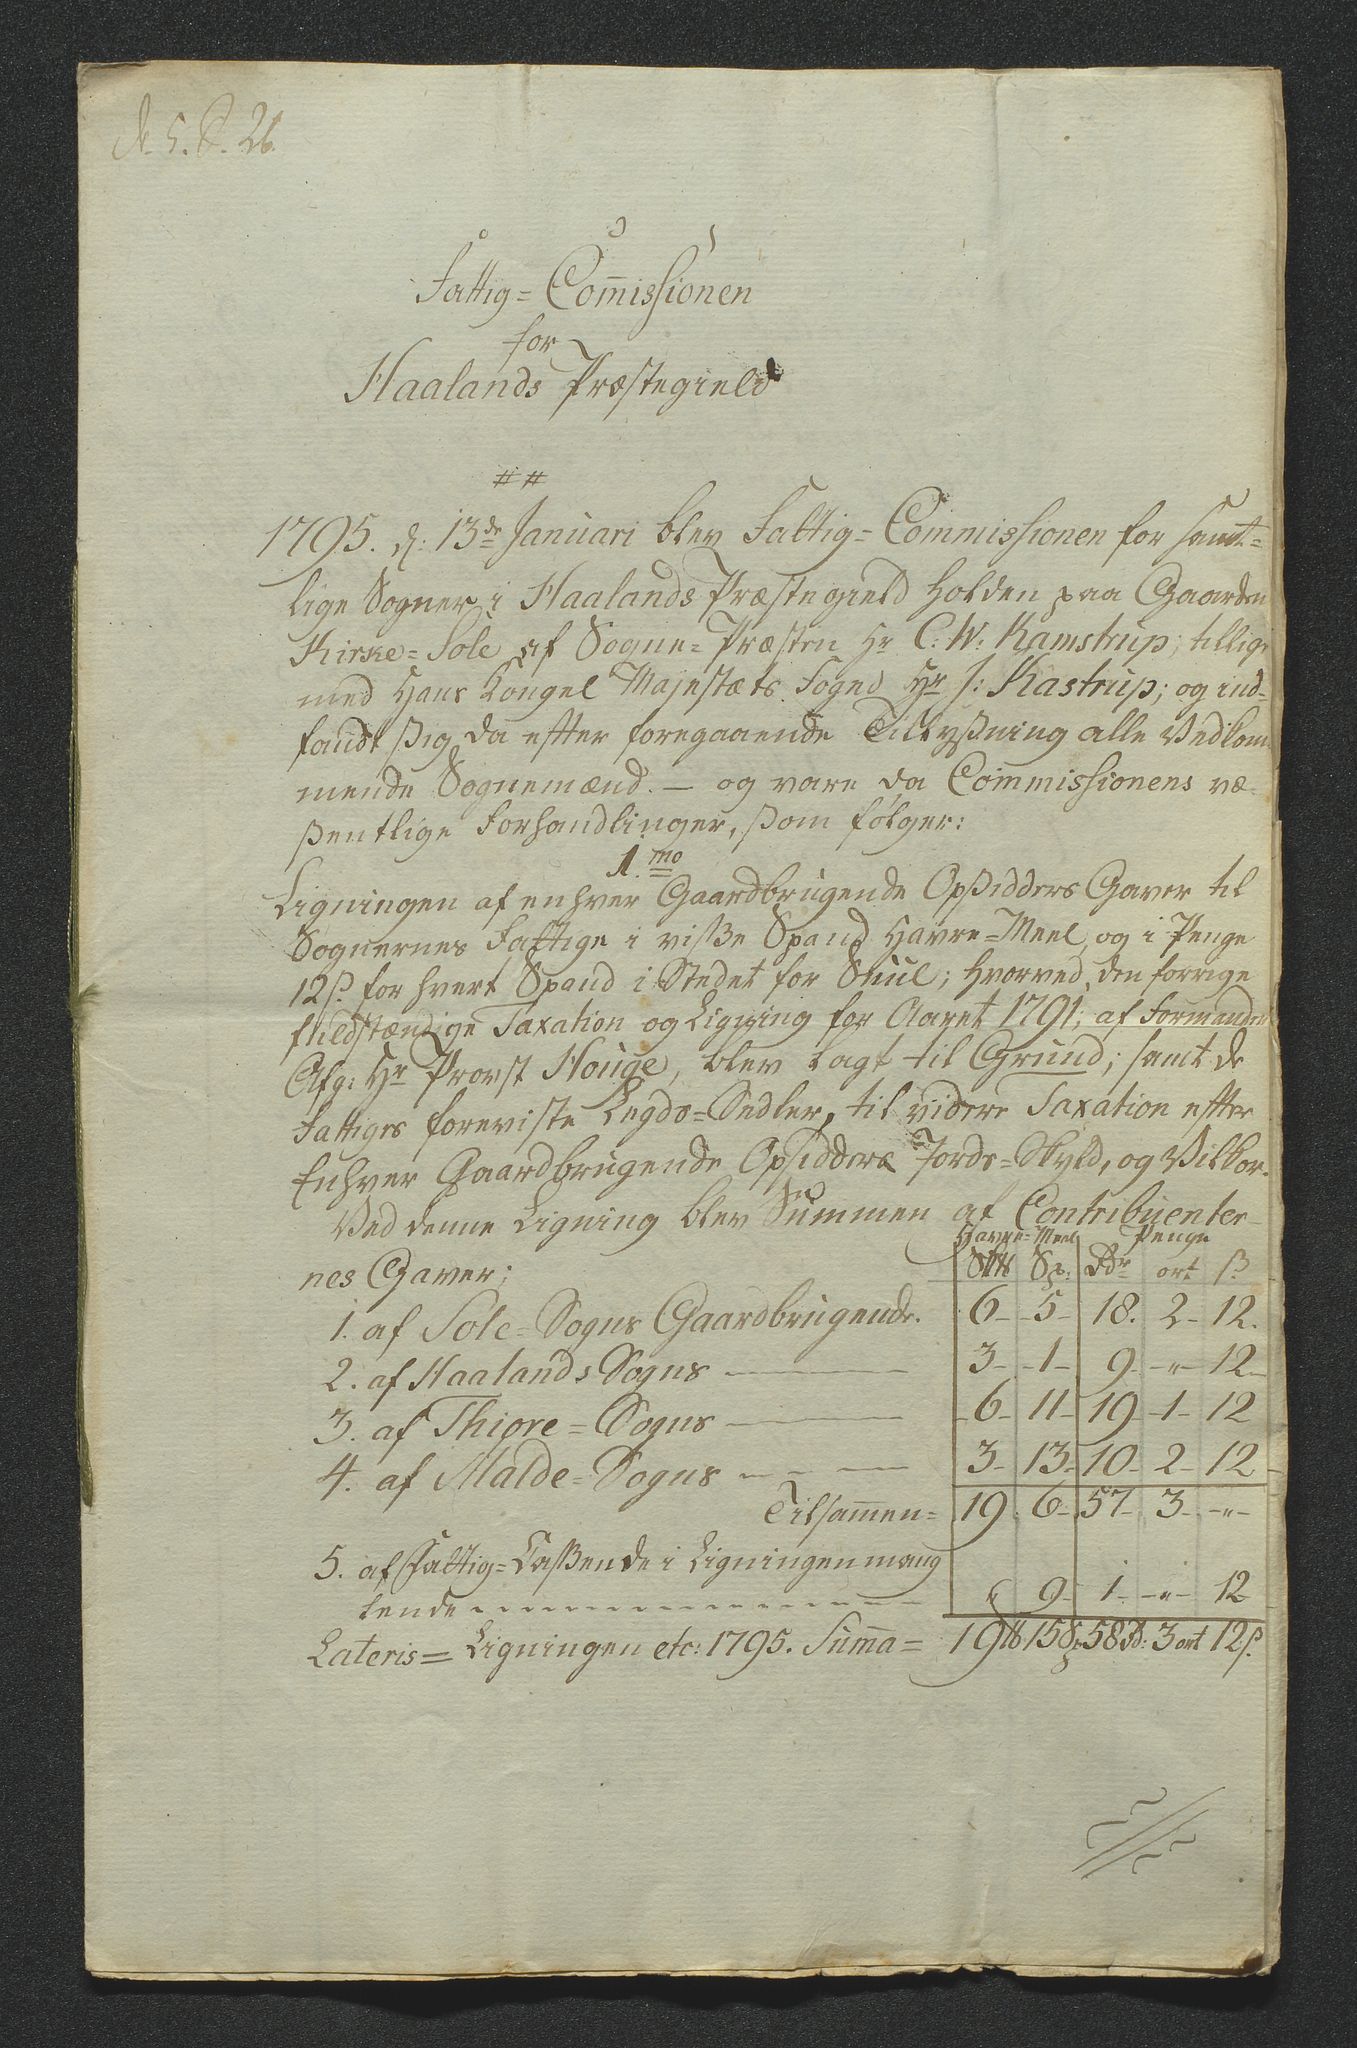 Fattig=Com̄issionen
for
Haalands Præstegield
##
1795. d: 13de Januari blev Fattig=Commissionen for samt=
lige Sogner i Haalands Præstegield holden paa Gaarden
Kirke=Sole af Sogne=Præsten Hr C. W. Kamstrup; tillige
med Hans Kongel Majestæts Foged Hr J: Kastrup; og ind=
fandt sig da efter foregaaende Tillysning alle Vedkom
mende Sognemænd. — og vare da Commissionens væ=
sentlige Forhandlinger, som følger:
1.mo
Ligningen af enhver Gaardbrugende Opsidders Gaver til
Sognernes Fattige i visse Spand Havre=Meel, og i Penge
12 s. for hvert Spand i Stedet for Suul; hvorved den forrige
fuldstændige Taxation og Ligning for Aaret 1791; af Formanden
Afg: Hr Provst Houge, blev lagt til Grund; samt de
Fattiges foreviste Legds=Sedler, til videre Taxation efter
Enhver Gaardbrugende Opsidders Jords=Skyld, og Vilkor.
Ved denne Ligning blev Summen af Contribuenter=
nes Gaver; Havre=Meel Penge
Sp: Rdr ort s.
1. af Sole=Sogns Gaardbrugende. 6- 5- 18. 2- 12.
2. af Haalands Sogns — 3- 1- 9- -"- 12-
3. af Thiore=Sogns — 6- 11- 19- 1- 12
4. af Malde=Sogns — 3- 13- 10- 2- 12
Tilsam̄en= 19. 6- 57- 3- -"-
5. af Fattig=Cassen de i Ligningen mang
lende - - - - - - " 9- 1- -"- 12
Lateris= Ligningen etc: 1795. Sum̄a= 19 15 Sp 58 Rd: 3 ort 12 s.